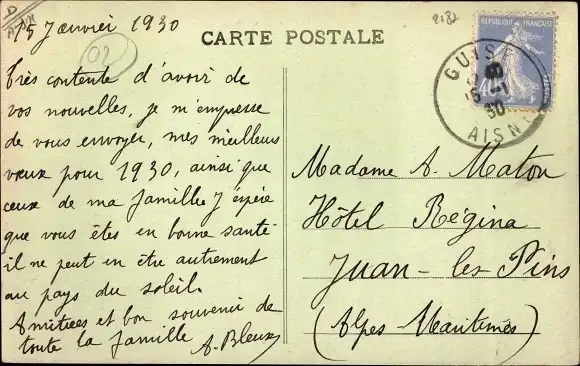 15 Janvier 1930
02
2182
CARTE POSTALE
RÉPUBLIQUE FRANÇAISE
GUISE
30
AISNE
Très contente d'avoir de
vos nouvelles, je m'empresse
de vous envoyer, mes meilleurs
vœux pour 1930, ainsi que
ceux de ma famille J'éspère
que vous êtes en bonne santé
il ne peut en être autrement
au pays du soleil.
Amitiées et bon souvenir de
toute la famille A. Bleux
Madame A. Maton
Hôtel Régina
Juan-les-Pins
(Alpes Maritimes)